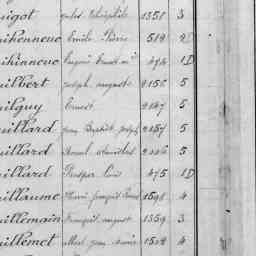 uigot Jules Théophile 1351 3
uihenneuc Emile Pierre 519 2D
uihinneuc Eugène Ernest 474 1D
uilbert Joseph Auguste 2155 5
uilguy Ernest 2147 5
uillard Jean Baptiste Joseph 2157 5
uillard Stanislas 5
uillard Prosper 475 1D
uillaume François 4
uillemain François August 1359 3
uillemet Albert Jean Marie 1528 4